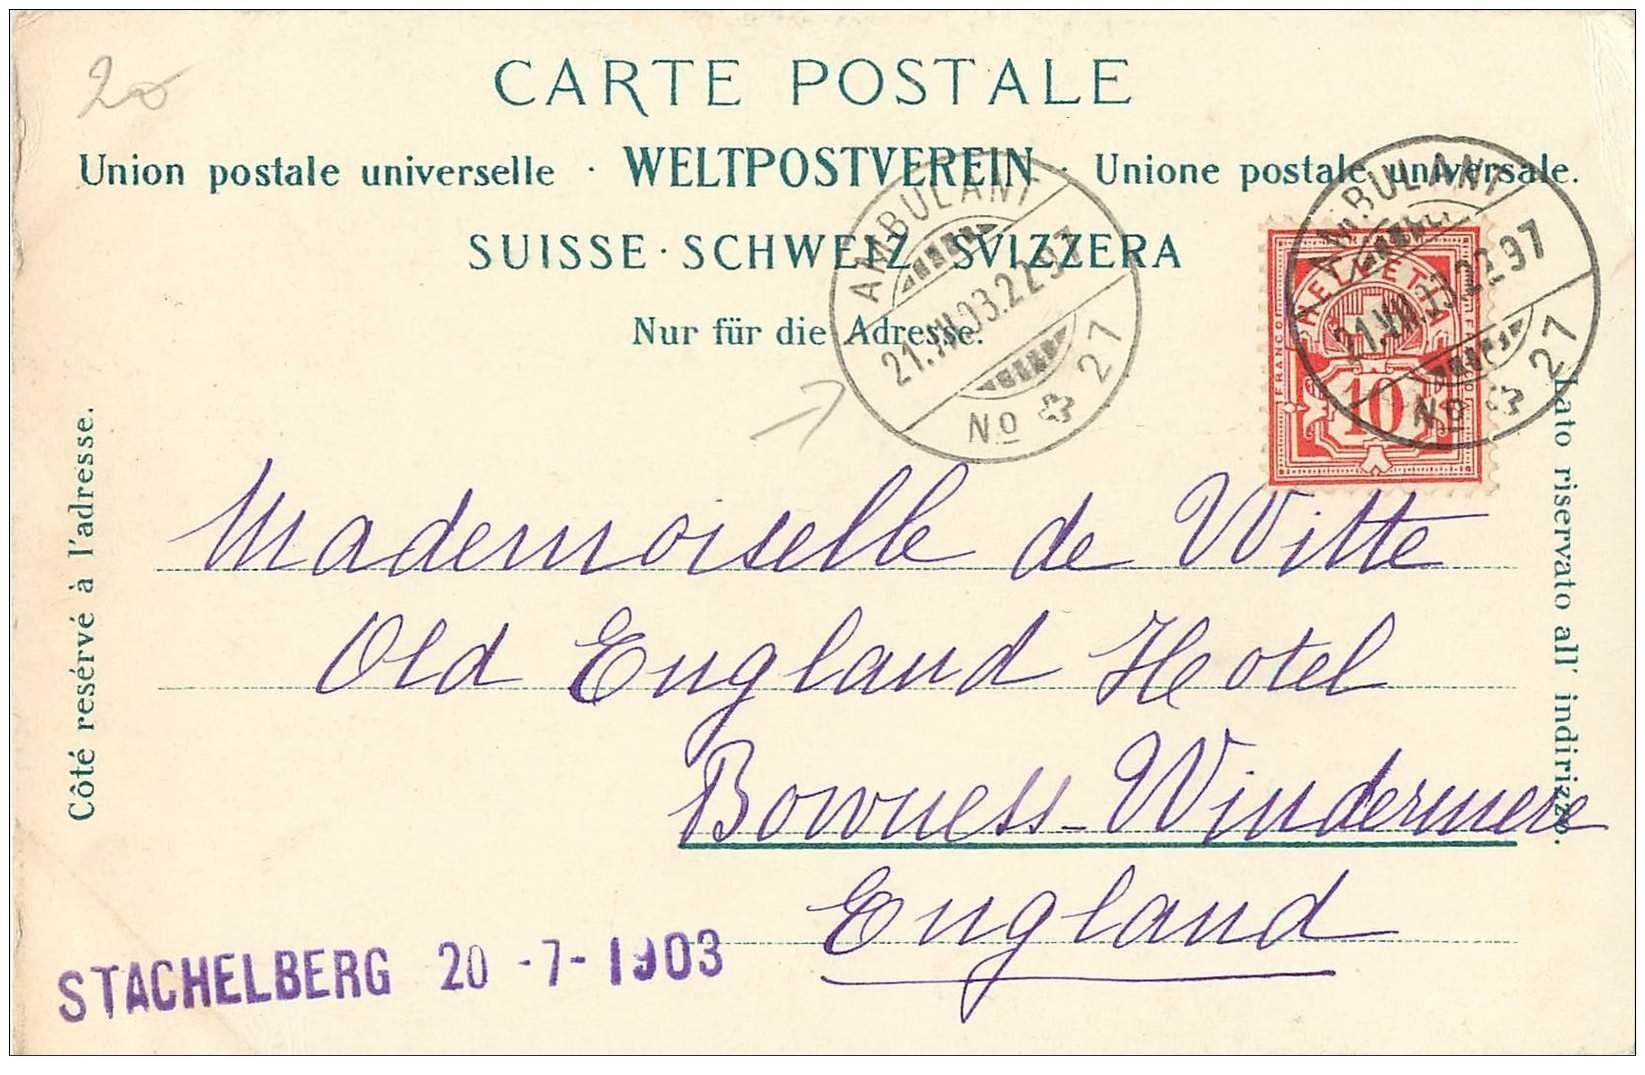 20
CARTE POSTALE
Union postale universelle · WELTPOSTVEREIN · Unione postale universale.
SUISSE · SCHWEIZ · SVIZZERA
Nur für die Adresse.
AMBULANT
21.VII.03.22.97
No 27
AMBULANT
21.VII.03.22.97
No 27
HELVETIA
FRANCO
10
Côté resérvé à l'adresse.
Lato riservato all' indirizzo.
Mademoiselle de Witte
Old England Hotel
Bowness-Windermere
England
STACHELBERG 20 -7-1903